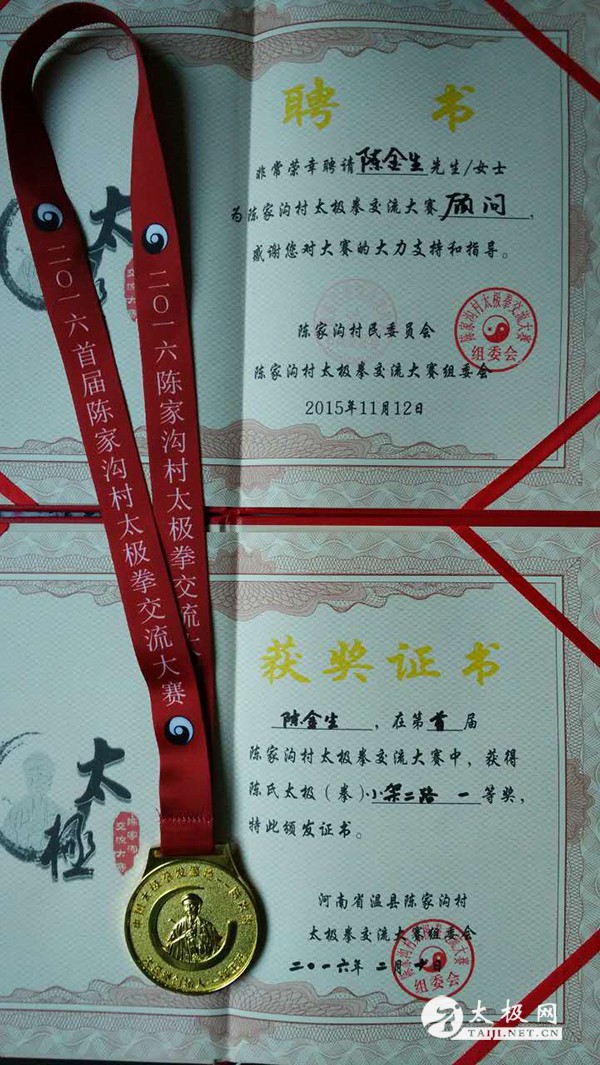 聘书
非常荣幸聘请陈金生先生/女士
为陈家沟村太极拳交流大赛顾问，
感谢您对大赛的大力支持和指导。
陈家沟村民委员会
陈家沟村太极拳交流大赛组委会
2015年11月12日
陈家沟村太极拳交流大赛
组委会
太
二〇一六首届陈家沟村太极拳交流大赛
二〇一六陈家沟村太极拳交流大赛
获奖证书
陈金生，在第首届
陈家沟村太极拳交流大赛中，获得
陈氏太极（拳）小架二路一等奖，
特此颁发证书。
河南省温县陈家沟村
太极拳交流大赛组委会
二〇一六年二月十日
组委会
太極
陈家沟
交流大赛
太极网
TAIJI.NET.CN